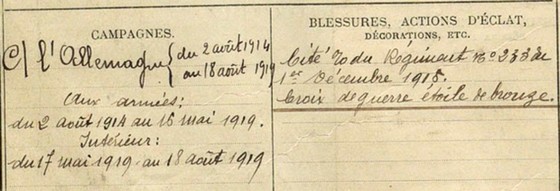 CAMPAGNES.
C/ l'Allemagne { du 2 août 1914
au 18 août 1919
Aux armées:
du 2 août 1914 au 16 mai 1919.
Intérieur:
du 17 mai 1919 au 18 août 1919
BLESSURES, ACTIONS D'ÉCLAT,
DÉCORATIONS, ETC.
Cité Jo du Régiment No 233 du
1er Décembre 1918.
Croix de guerre étoile de bronze.